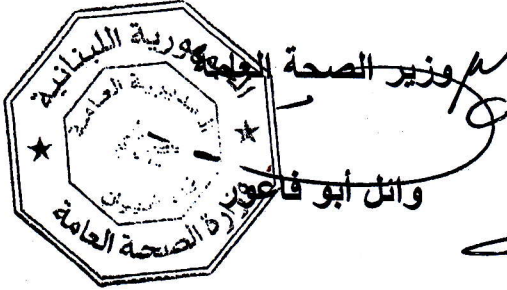 وزير الصحة العامة
وائل أبو فاعور
الجمهورية اللبنانية
المديرية العامة
وزارة الصحة العامة